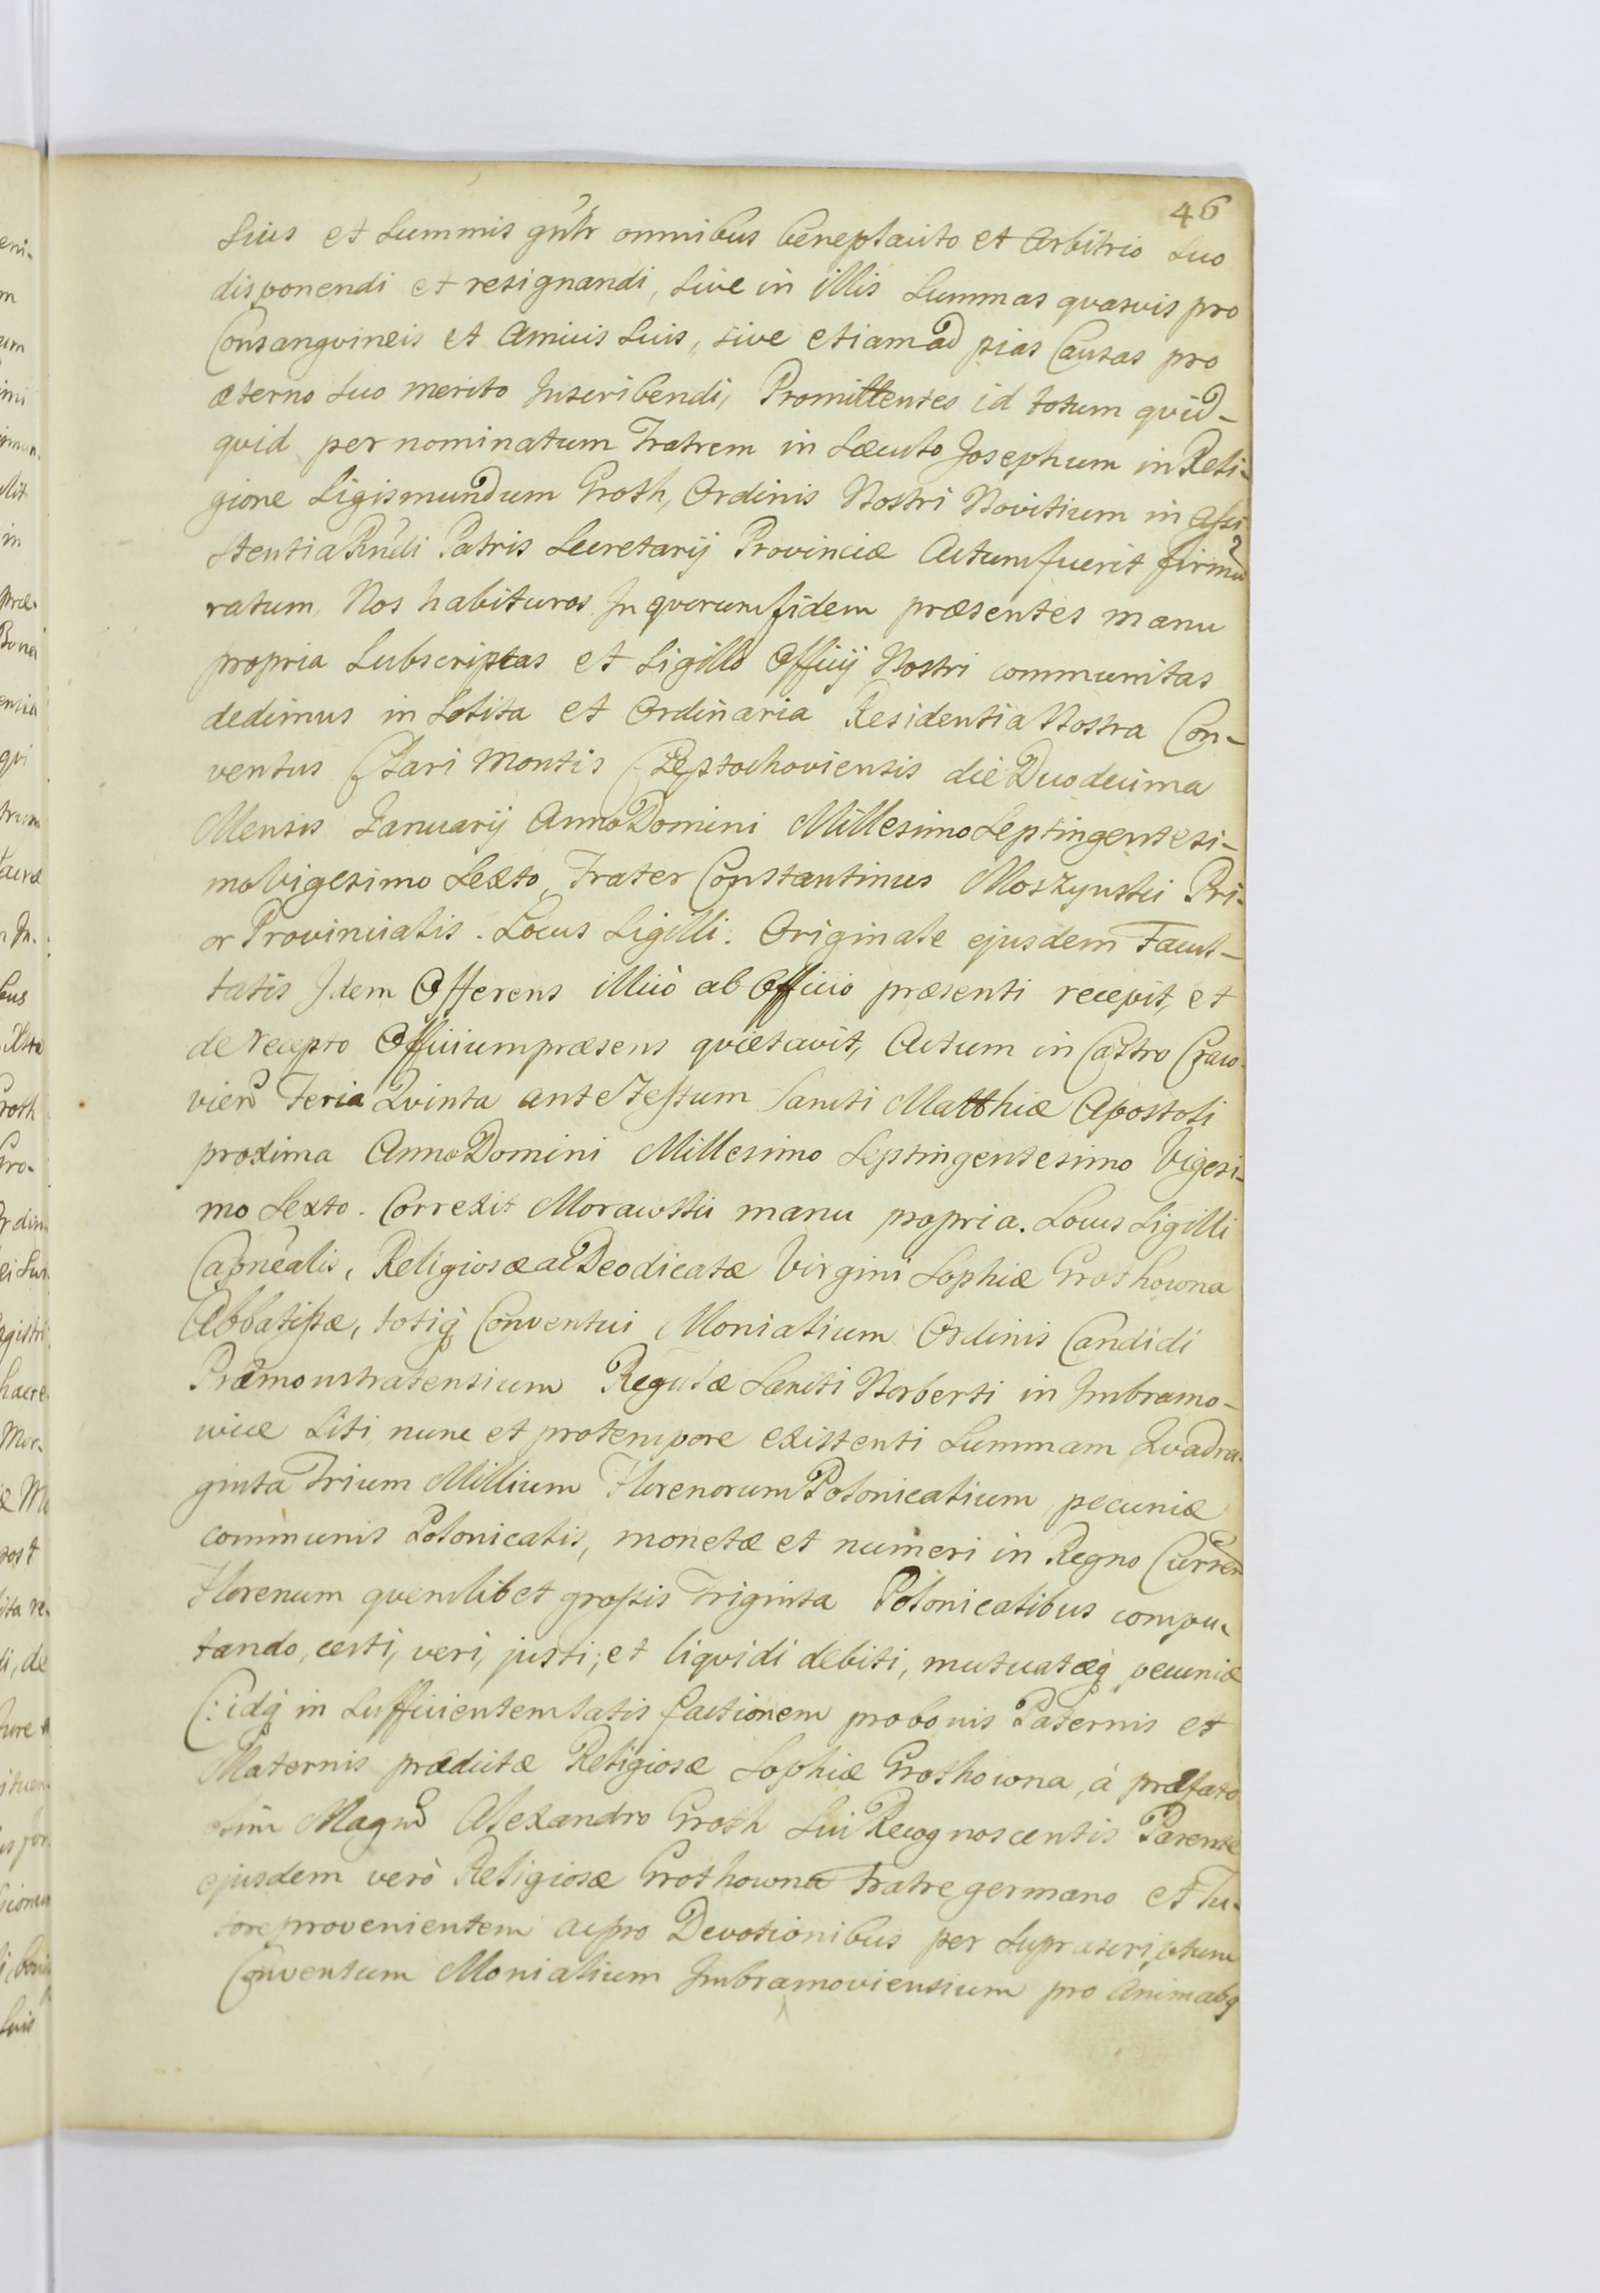 46
Suis et Summis gnlr omnibus beneplacito et Arbitrio Suo
disponendi et resignandi, Sive in illis Summas qvasvis pro
Consangvineis et Amicis Suis, sive etiam ad pias Causas pro
æterno Suo merito Inscribendi, Promittentes id totum qvid-
qvid per nominatum Fratrem in Sæculo Josephum in Reli-
gione Sigismundum Groth, Ordinis Nostri Novitium in Assi-
stentia Rndi Patris Secretarij Provinciæ Actum fuerit firmu
ratum Nos habituros. In qvorum fidem præsentes manu
propria Subscriptas et Sigillo Officij Nostri communitas
dedimus in Solita et Ordinaria Residentia Nostra Con-
ventus Clari Montis Częstochoviensis die Duodecima
Mensis Januarij Anno Domini Millesimo Septingentesi-
mo Vigesimo Sexto, Frater Constantinus Moszynski Pri-
or Provincialis. Locus Sigilli. Originale ejusdem Facul-
tatis Idem Offerens illicò ab Officio præsenti recepit, et
de recepto Officium præsens qvietavit, Actum in Castro Craco-
vien Feria Qvinta ante Festum Sancti Matthiæ Apostoli
proxima Anno Domini Millesimo Septingentesimo Vigesi-
mo Sexto. Correxit Morawski manu propria. Locus Sigilli
Capnealis, Religiosæ ac Deodicatæ Virgini Sophiæ Grothowna
Abbatissæ, totiq Conventui Monialium Ordinis Candidi
Præmonstratensium Regulæ Sancti Norberti in Imbramo-
wice Siti nunc et pro tempore existenti Summam Qvadra-
ginta Trium Millium Florenorum Polonicalium pecuniæ
communis Polonicalis, monetæ et numeri in Regno Curren
Florenum qvemlibet grossis Triginta Polonicalibus compu-
tando, certi, veri, justi, et liqvidi debiti, mutuatæq pecuniæ
(: idq in Sufficientem Satisfactionem pro bonis Paternis et
Maternis prædictæ Religiosæ Sophiæ Grothowna, à præfato
olim Magno Alexandro Groth Sui Recognoscentis Parente
ejusdem verò Religiosæ Grothowna Fratre germano et Tu-
tore provenientem ac pro Devotionibus per Suprascriptum
Conventum Monialium Imbramoviensium pro Animabq